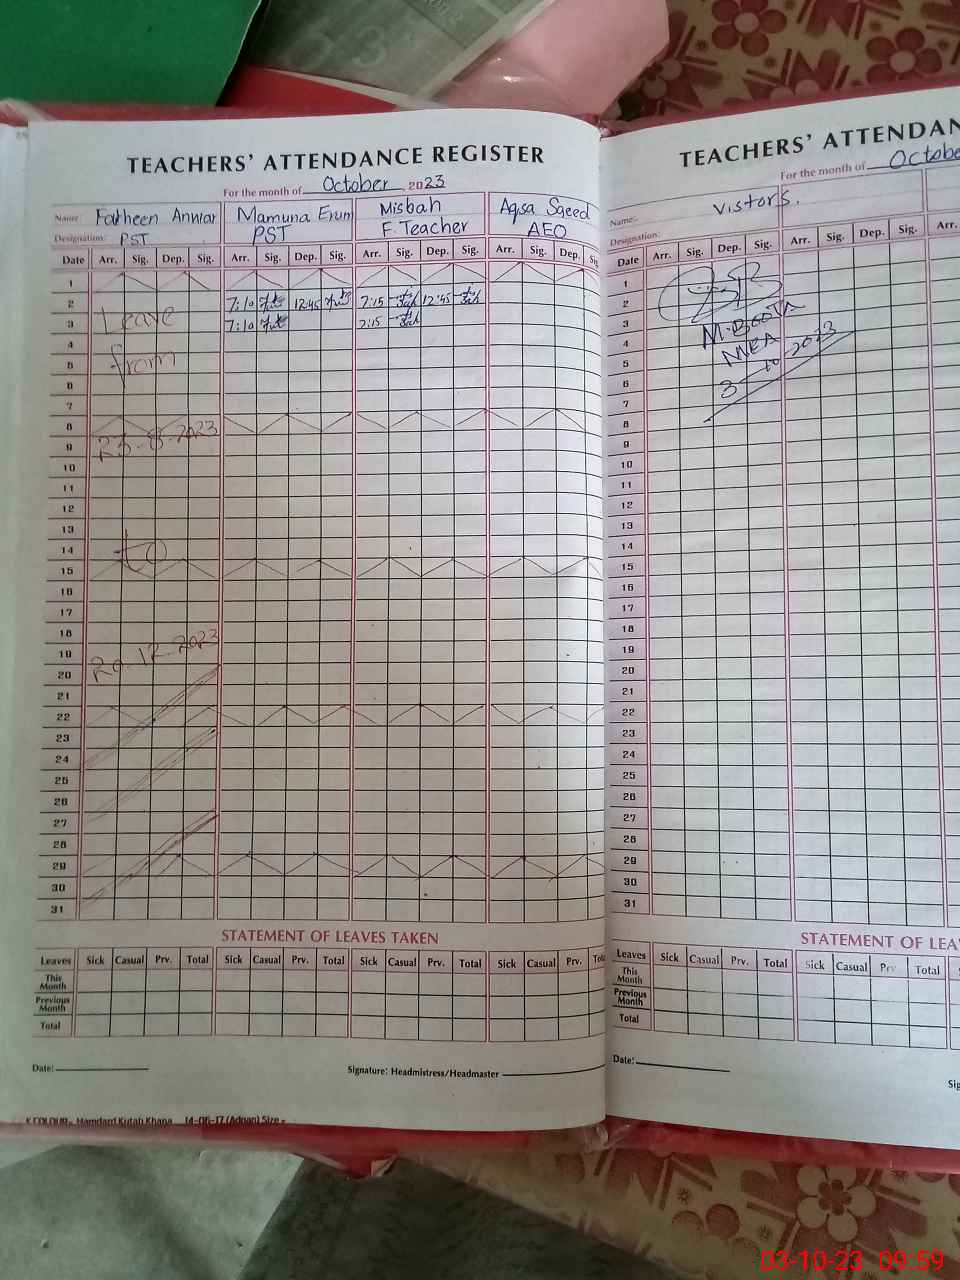 TEACHERS' ATTENDANCE REGISTER
For the month of October, 2023
Name: Farheen Anwar Mamuna Erum Misbah Aqsa Saeed
Designation: PST PST F. Teacher AEO
Date Arr. Sig. Dep. Sig. Arr. Sig. Dep. Sig. Arr. Sig. Dep. Sig. Arr. Sig. Dep.
1
2 7:10 12:45 7:15 12:45
3 Leave 7:10 7:15
4
5 from
6
7
8
9 23-8-2023
10
11
12
13
14 to
15
16
17
18
19
20 20.12.2023
21
22
23
24
25
26
27
28
29
30
31
STATEMENT OF LEAVES TAKEN
Leaves Sick Casual Prv. Total Sick Casual Prv. Total Sick Casual Prv. Total Sick Casual Prv.
This Month
Previous Month
Total
Date: Signature: Headmistress/Headmaster
Hamdard Kutab Khana 14-06-17 (Adnan) Size -
TEACHERS' ATTENDAN
For the month of Octobe
Name:- Vistors.
Designation:
Date Arr. Sig. Dep. Sig. Arr. Sig. Dep. Sig. Arr.
1
2
3 M. BOOTA
4
5 MEA
6 3-10-2023
7
8
9
10
11
12
13
14
15
16
17
18
19
20
21
22
23
24
25
26
27
28
29
30
31
STATEMENT OF LEA
Leaves Sick Casual Prv. Total Sick Casual Prv. Total
This Month
Previous Month
Total
Date:
Sig
03-10-23 09:59